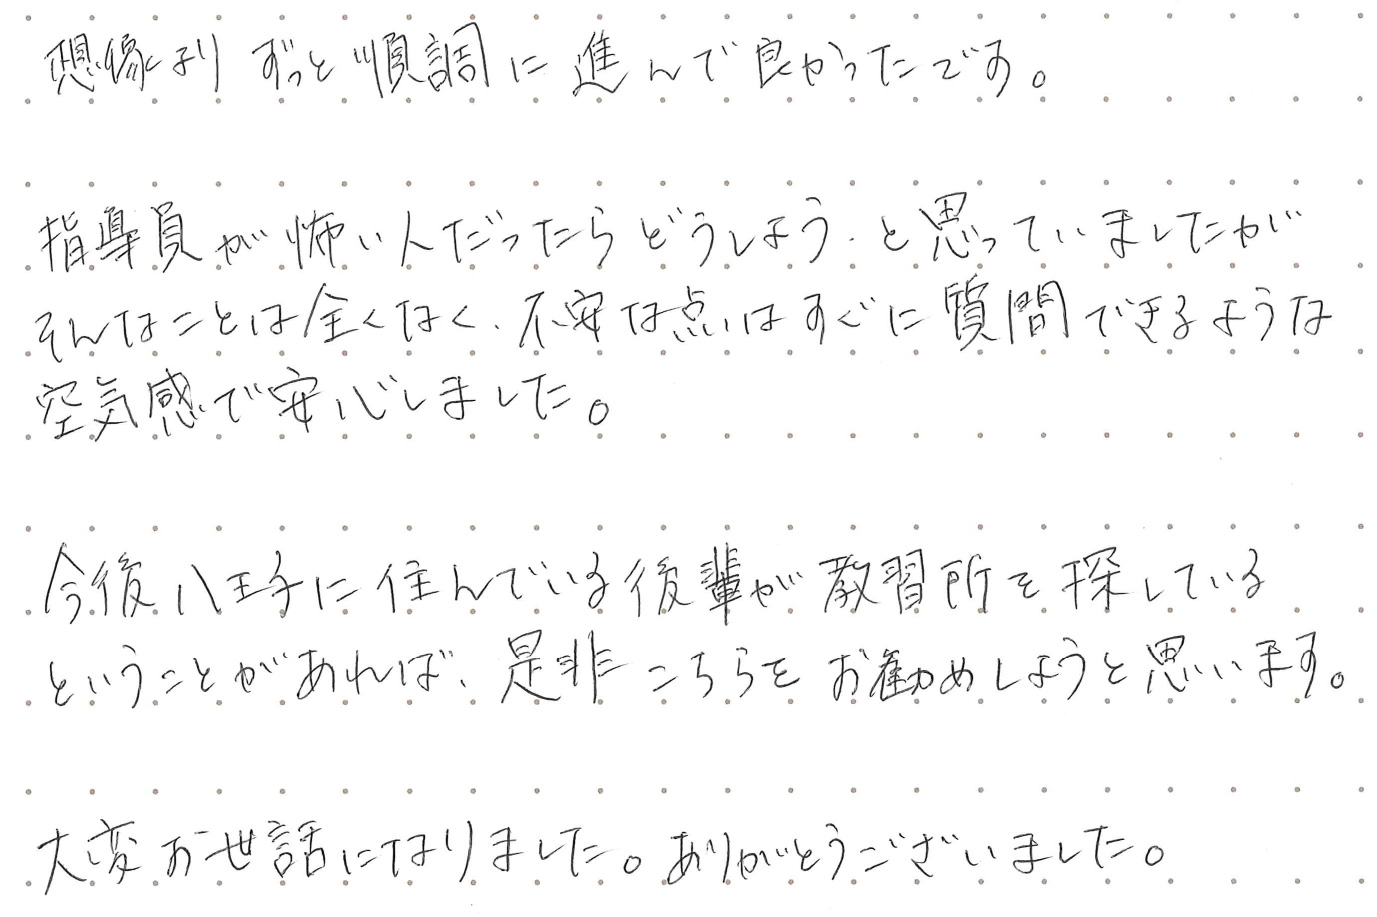 想像より ずっと順調に進んで良かったです。
指導員が怖い人だったらどうしよう、と思っていましたが
そんなことは全くなく、不安な点はすぐに質問できるような
空気感で安心しました。
今後八王子に住んでいる後輩が教習所を探している
ということがあれば、是非こちらをお勧めしようと思います。
大変お世話になりました。ありがとうございました。